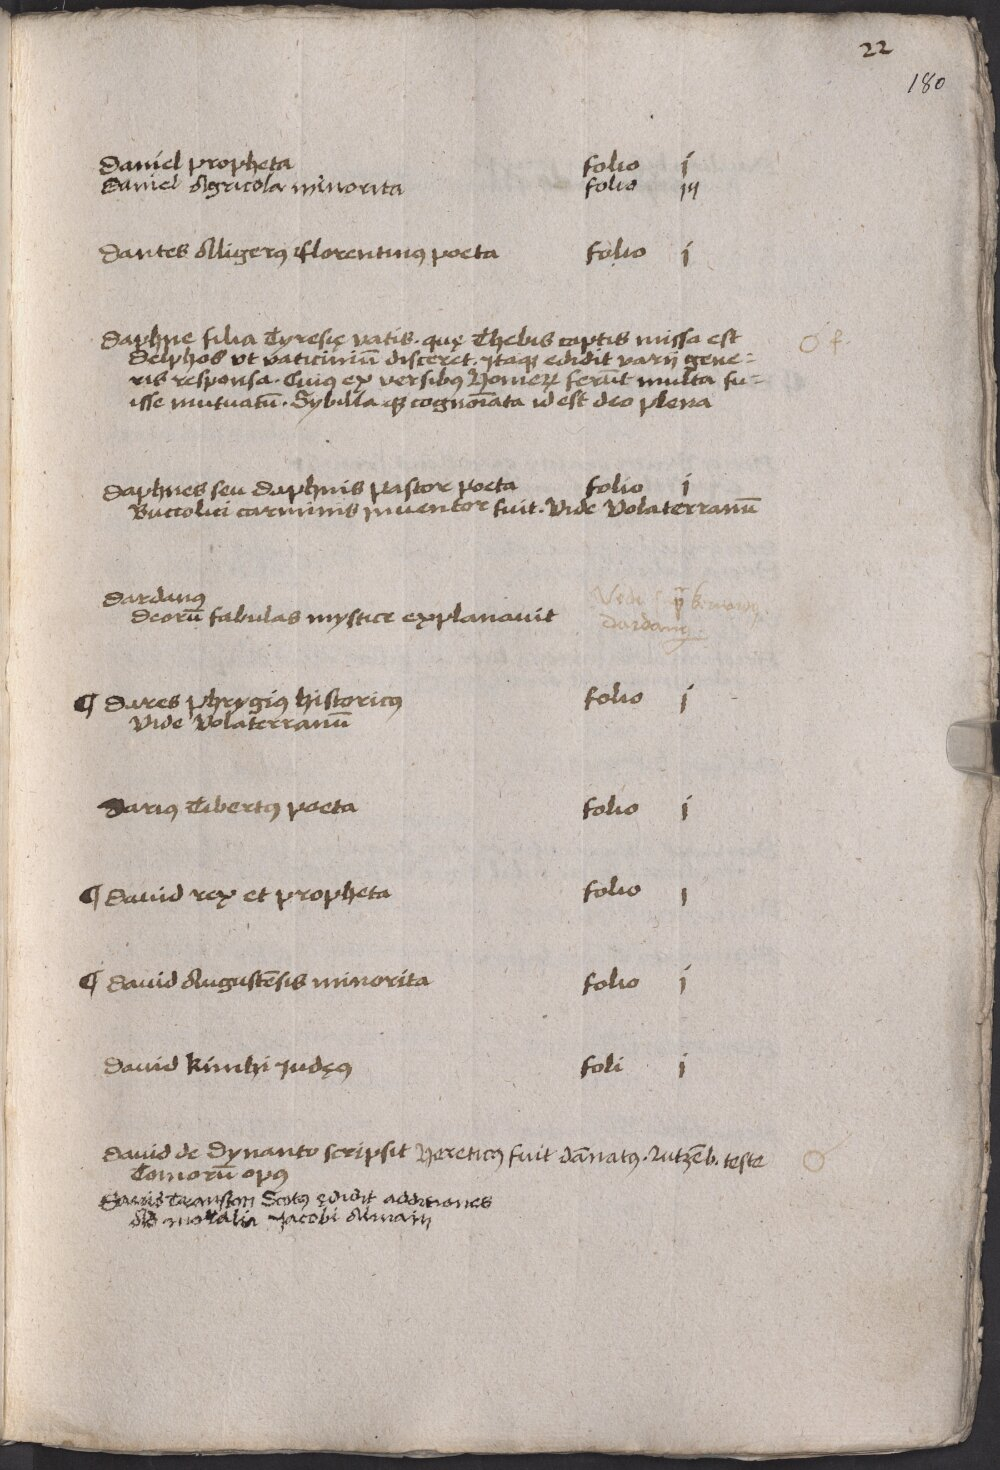 22
180
Daniel propheta folio j
Daniel Agricola minorita folio iij
Dantes Alligerꝰ Florentinꝰ poeta folio j
Daphne filia Tyresię vatis. quę Thebis captis missa est
Delphos vt vaticiniū disceret. Itaqꝫ edidit varij gene=
ris responsa. Cuiꝰ ex versibꝰ Homerꝝ ferūt multa fu=
isse mutuatū. Sybilla qꝫ cognoīata id est deo plena
O f.
Daphnes seu Daphnis pastor poeta folio j
Buccolici carminis inuentor fuit. Vide Volaterranū
Dardanꝰ
Deorū fabulas mystice explanauit
Vide
Dardanꝰ.
¶ Dares Phrygiꝰ historicꝰ folio j
Vide Volaterranū
Dariꝰ Tibertꝰ poeta folio j
¶ Dauid rex et propheta folio j
¶ Dauid Augustēsis minorita folio j
Dauid kimhi Iudęꝰ foli j
Dauid de Dynanto scripsit Hereticꝰ fuit dānatꝰ. Lutzēb. teste
Tomorū opꝰ
O
Dauid Cranston Scotꝰ ędidit additiones
Ad moralia Jacobi Almain